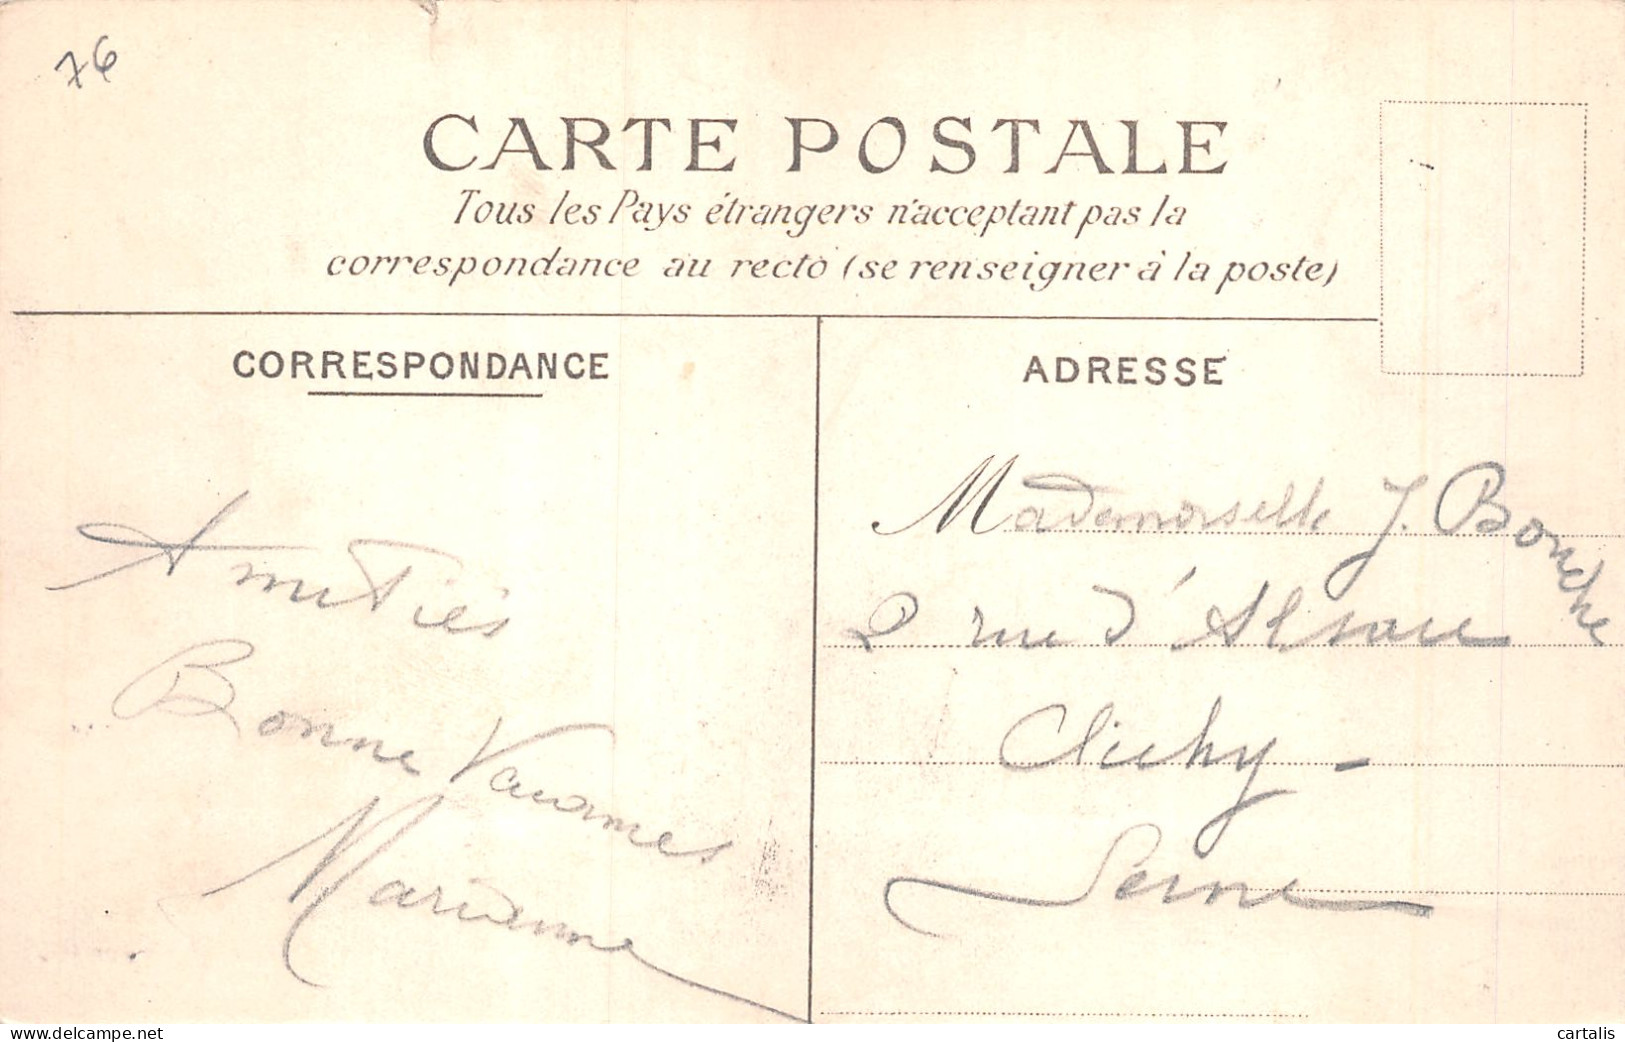 76
CARTE POSTALE
Tous les Pays étrangers n'acceptant pas la
correspondance au recto (se renseigner à la poste)
CORRESPONDANCE
Amitiés
Bonne Vacances
Marianne
ADRESSE
Mademoiselle J. Bouche
2 rue d'Alsace
Clichy -
Seine
www.delcampe.net
cartalis